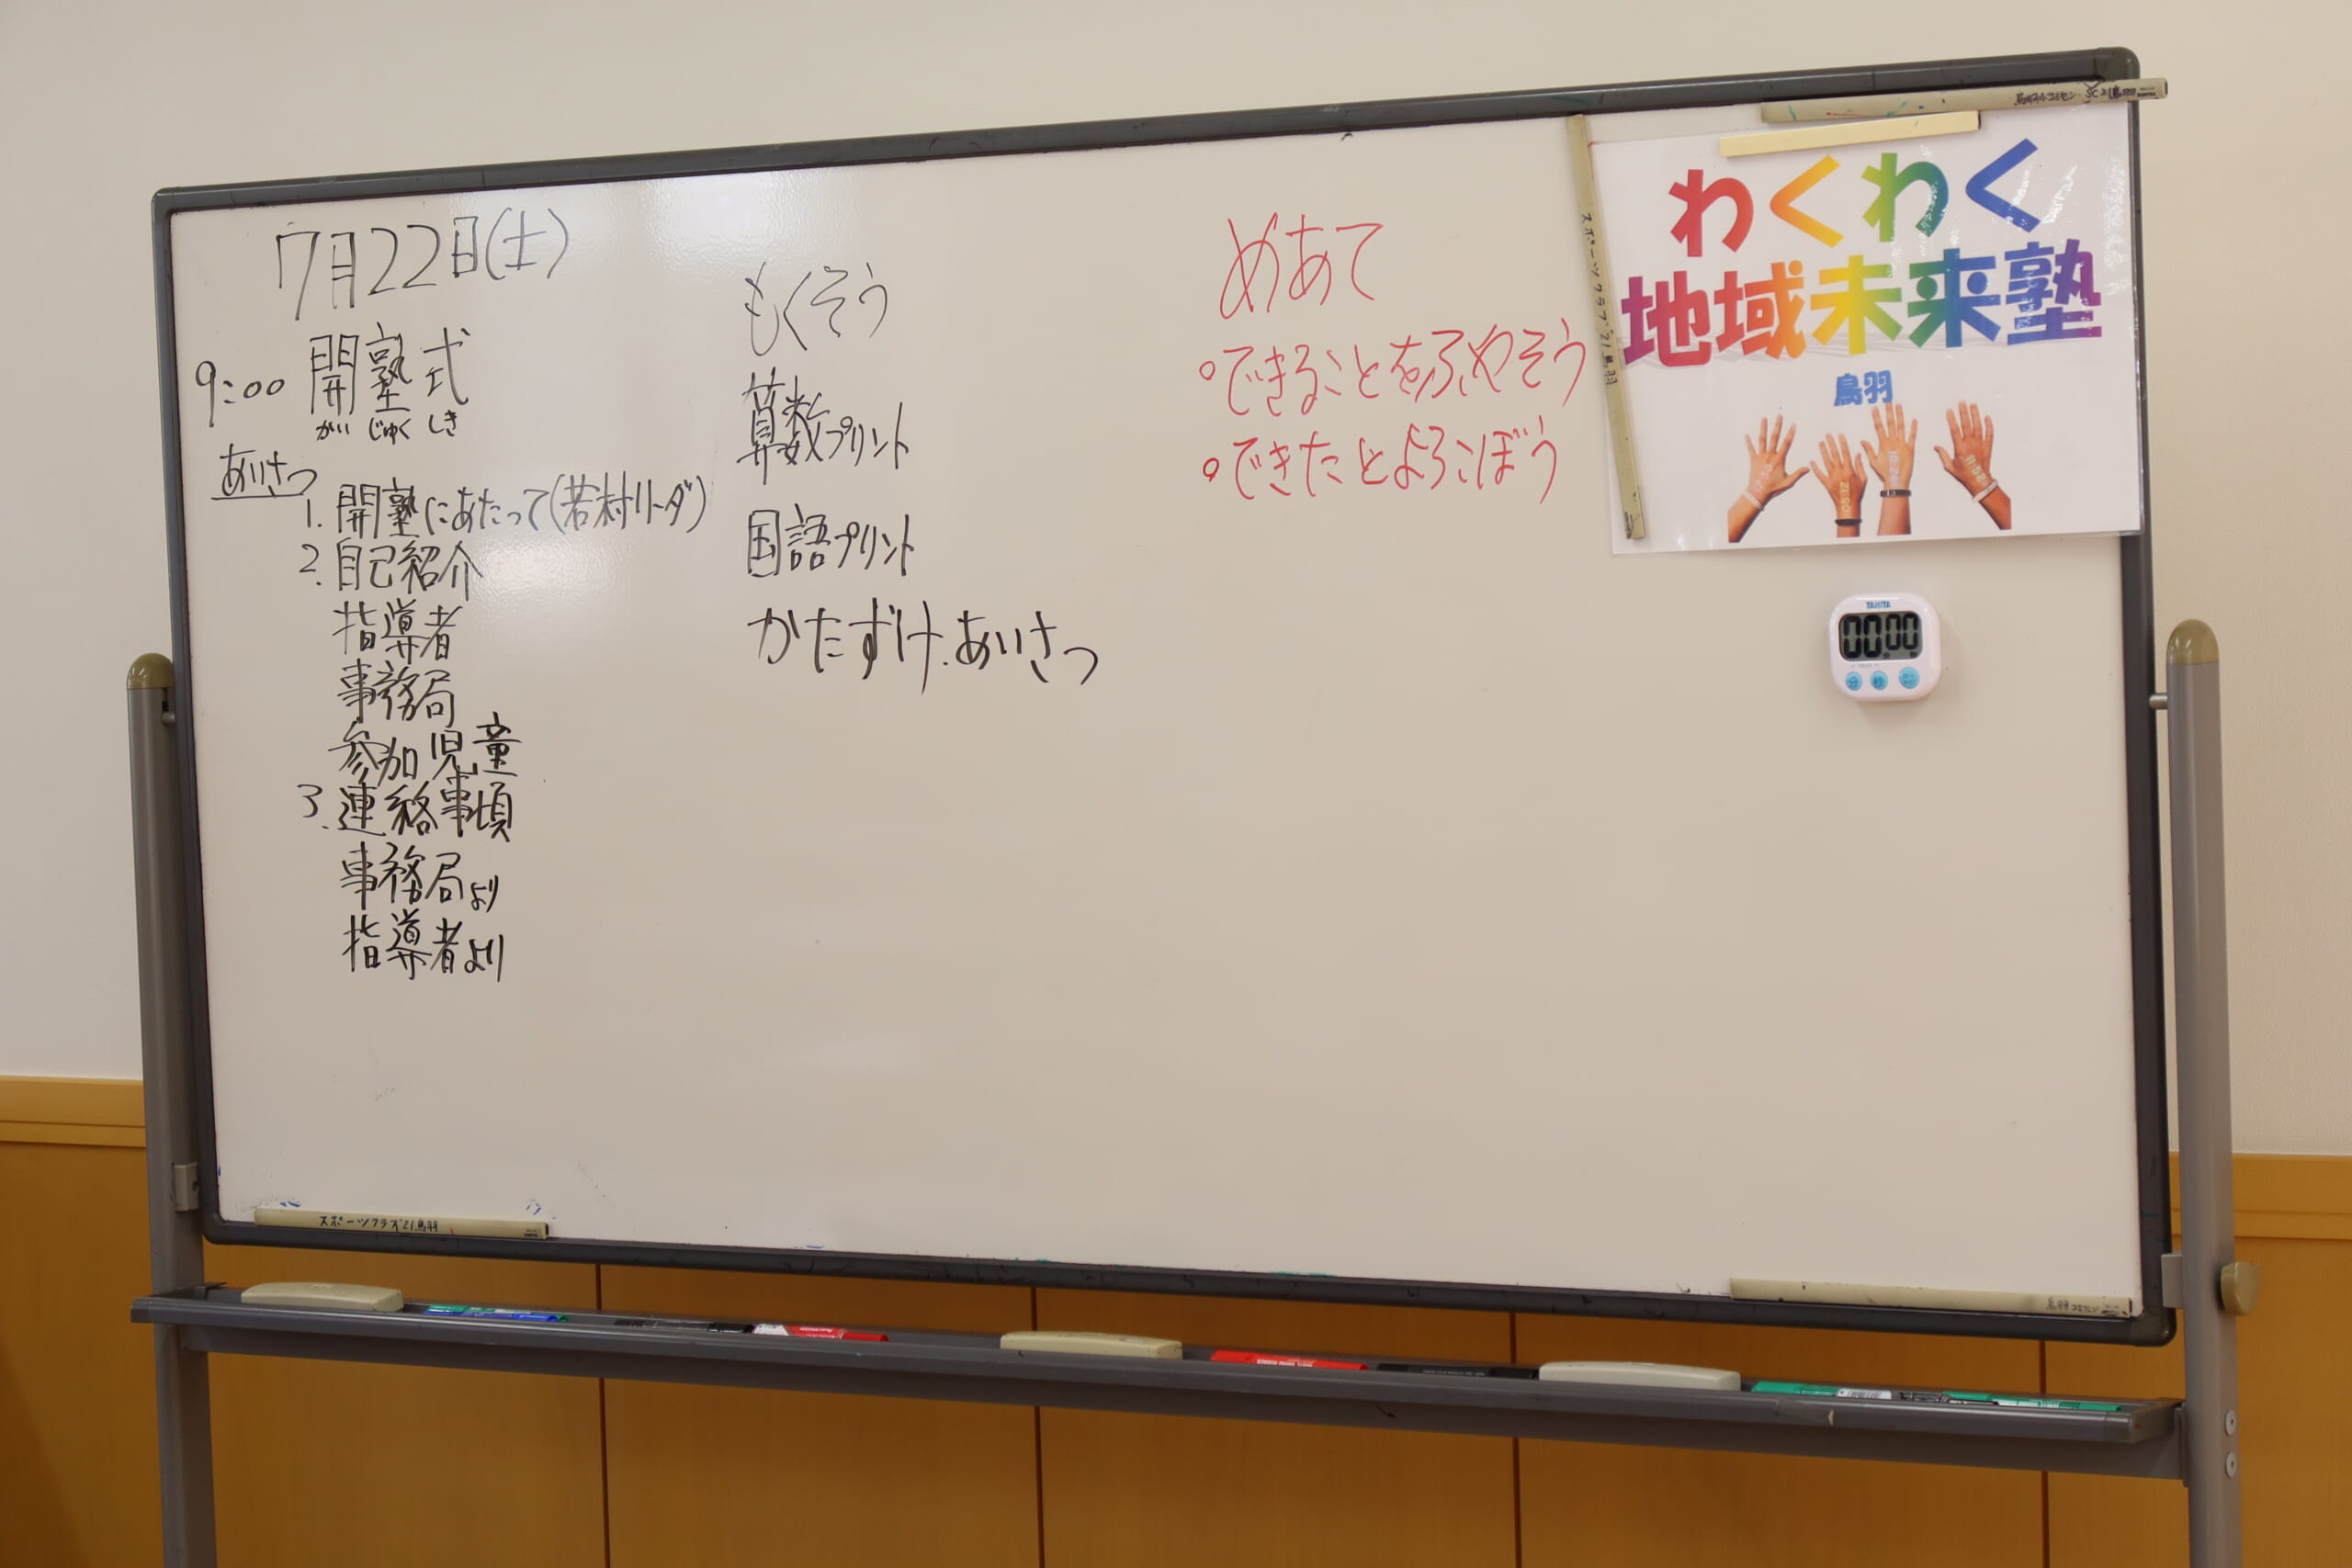 7月22日(土)
9:00 開塾式
がい じゅく しき
あいさつ
1. 開塾にあたって(若村リーダ)
2. 自己紹介
指導者
事務局
参加児童
3. 連絡事項
事務局より
指導者より
もくそう
算数プリント
国語プリント
かたずけ.あいさつ
めあて
できることをふやそう
できたとよろこぼう
わくわく
地域未来塾
鳥羽
スポーツクラブ21鳥羽
TANITA
00:00
分 秒
スポーツクラブ21鳥羽